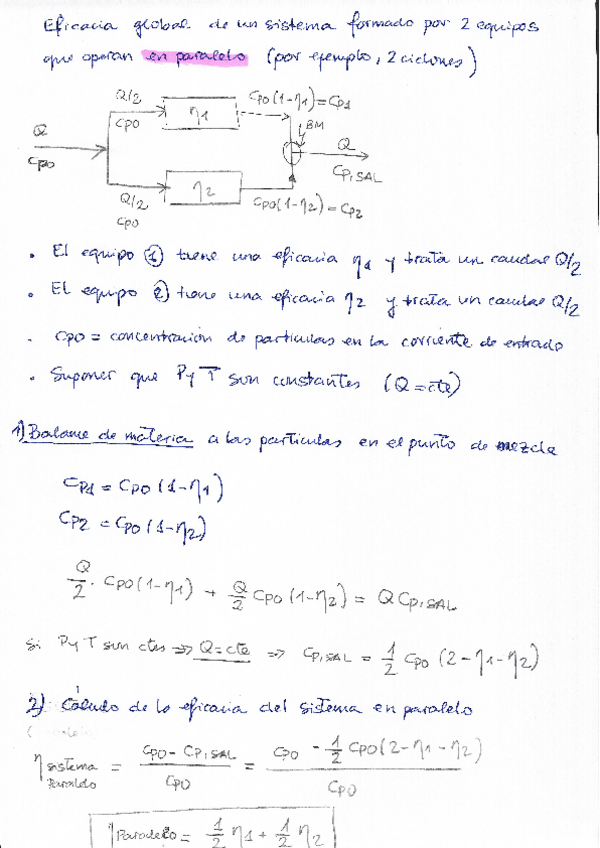 Eficacia global de un sistema formado por 2 equipos
que operan en paralelo (por ejemplo, 2 ciclones)
Q/2
CPO
η1
CPO(1-η1)=CP1
Q
CPO
BM
Q
CP,SAL
η2
Q/2
CPO
CPO(1-η2)=CP2
. El equipo ① tiene una eficacia η1 y trata un caudal Q/2
. El equipo ② tiene una eficacia η2 y trata un caudal Q/2
. CPO = concentración de partículas en la corriente de entrada
. Suponer que P y T son constantes (Q=cte)
1) Balance de materia a las partículas en el punto de mezcla
CP1 = CPO (1-η1)
CP2 = CPO (1-η2)
Q/2 · CPO(1-η1) + Q/2 CPO (1-η2) = Q CP,SAL
Si P y T son ctes ⇒ Q=cte ⇒ CP,SAL = 1/2 CPO (2-η1-η2)
2) Cálculo de la eficacia del sistema en paralelo
η sistema paralelo = (CPO - CP,SAL)/CPO = (CPO - 1/2 CPO(2-η1-η2))/CPO
η Paralelo = 1/2 η1 + 1/2 η2